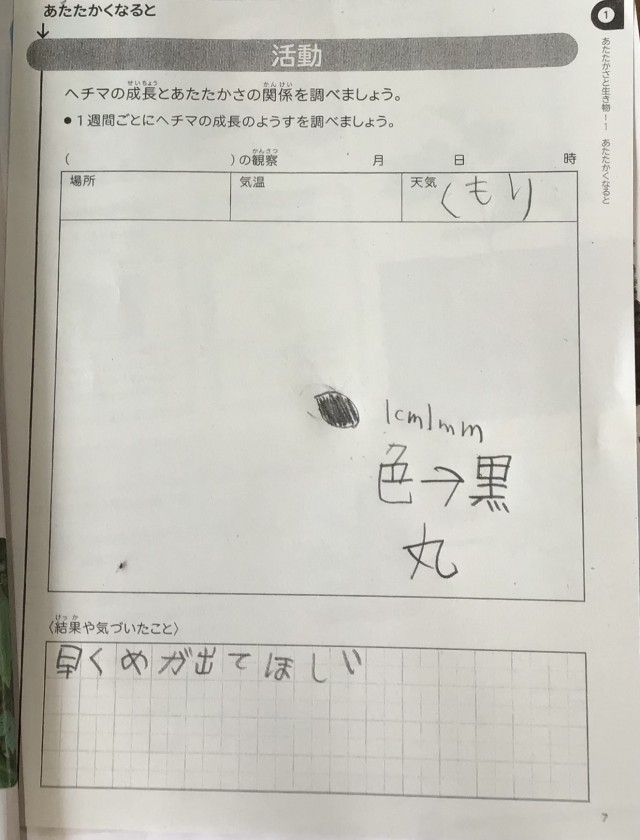 あたたかくなると
1
活動
あたたかさと生き物!1 あたたかくなると
ヘチマの成長とあたたかさの関係を調べましょう。
●1週間ごとにヘチマの成長のようすを調べましょう。
( )の観察 月 日 時
場所 気温 天気 くもり
1cm1mm
色→黒
丸
〈結果や気づいたこと〉
早くめが出てほしい
7